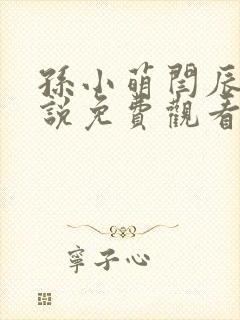 孫小萌閆辰
說免費觀看
寧子心